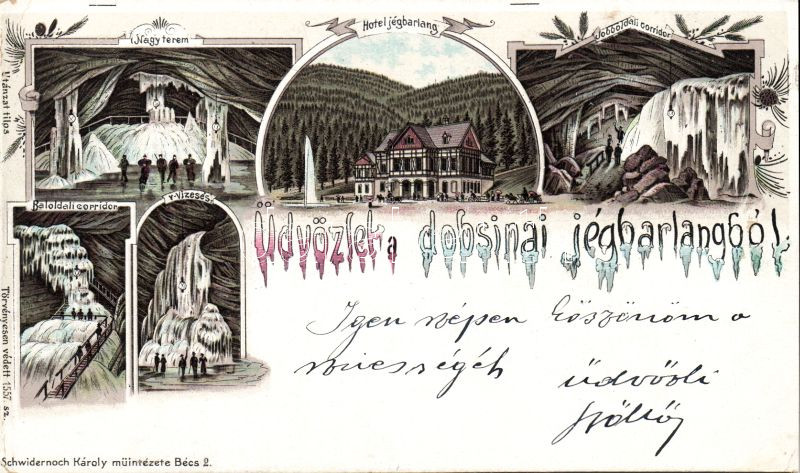 Nagy terem
Hotel jégbarlang
Jobboldali corridor
Utánzat tilos
Baloldali corridor
v. Vizesés
Üdvözlet a dobsinai jégbarlangból.
Igen szépen köszönöm a
szivességét üdvözli
Törvényesen védett 1557. sz.
Schwidernoch Károly müintézete Bécs 2.